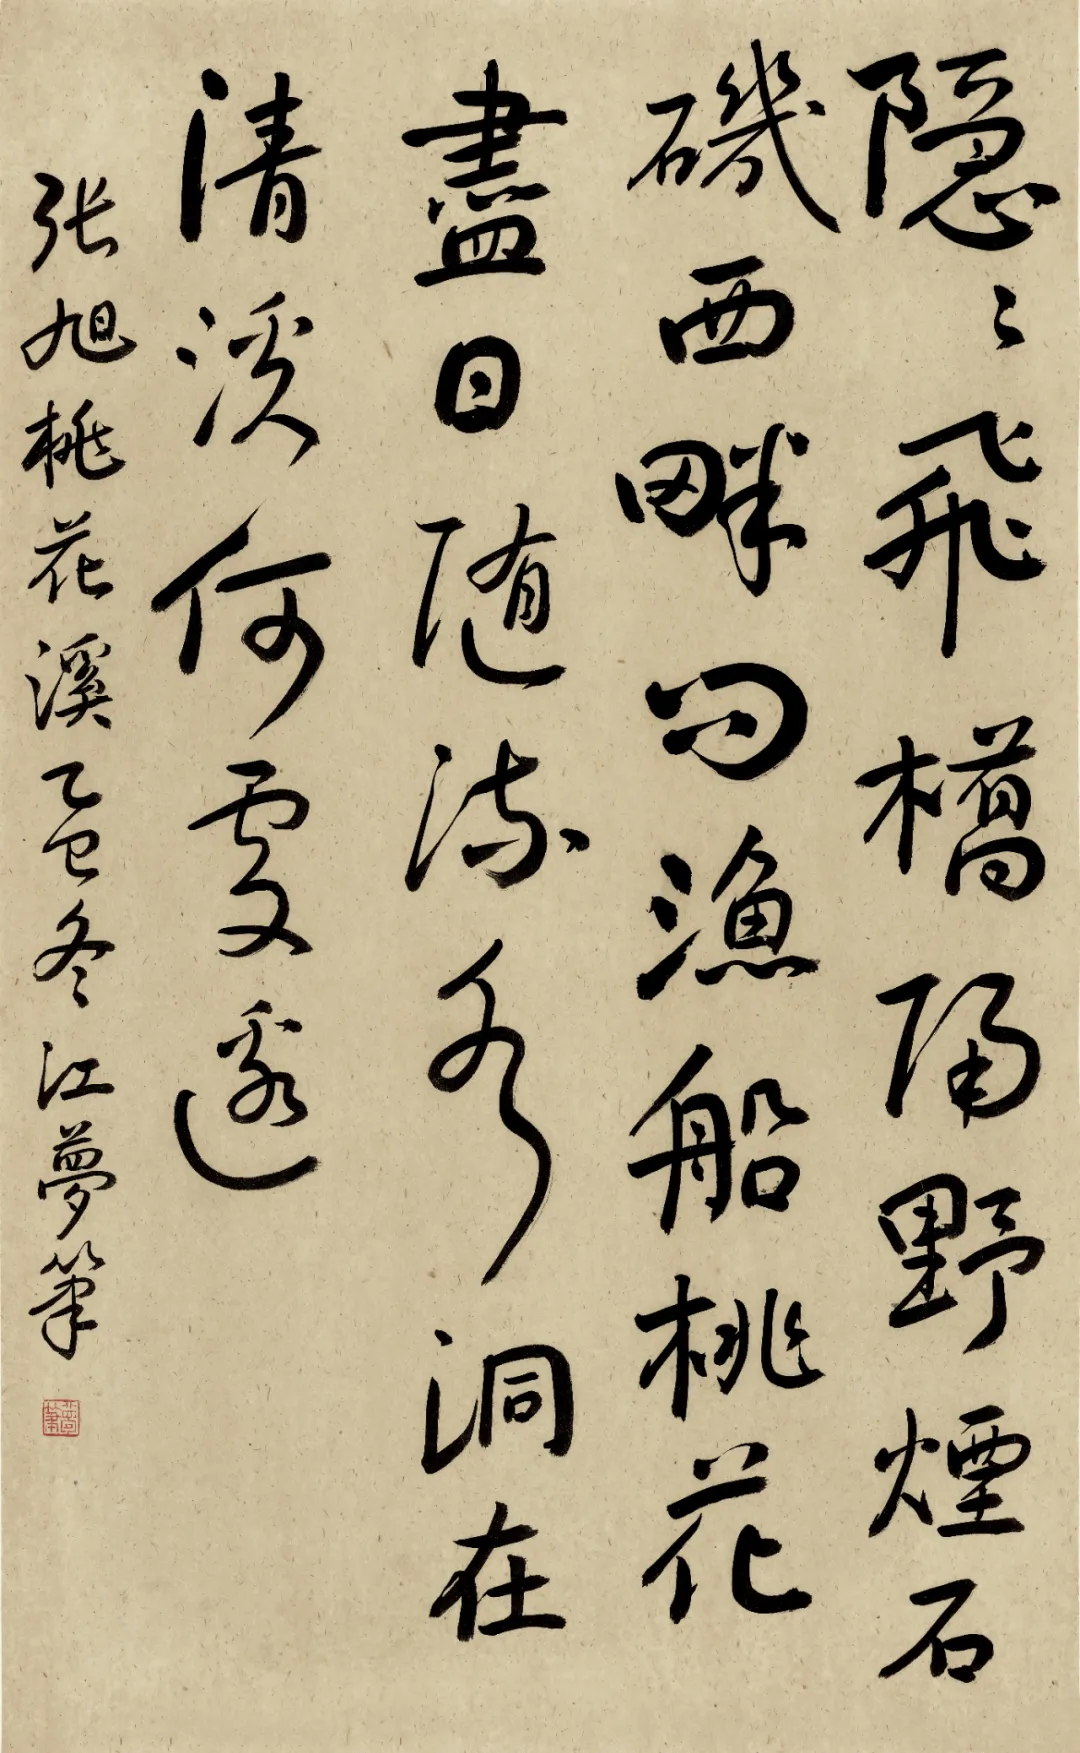 隱〻飛橋隔野煙石
磯西畔问漁船桃花
盡日随流水洞在
清溪何處邊
张旭桃花溪乙巳冬江夢筆